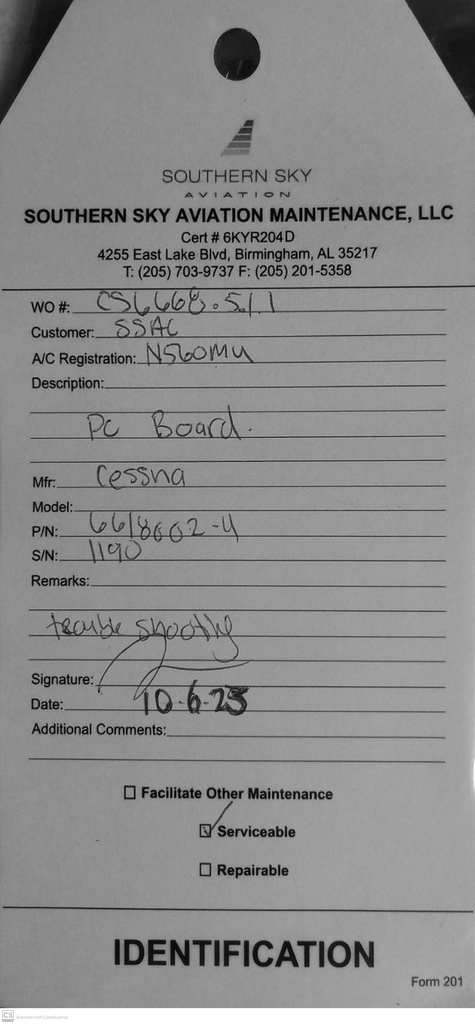 SOUTHERN SKY
AVIATION
SOUTHERN SKY AVIATION MAINTENANCE, LLC
Cert # 6KYR204D
4255 East Lake Blvd, Birmingham, AL 35217
T: (205) 703-9737 F: (205) 201-5358
WO #: CS6668.5.1.1
Customer: SSAC
A/C Registration: N560MU
Description:
PC Board.
Mfr: Cessna
Model:
P/N: 6618602-4
S/N: 1190
Remarks:
trouble shootly
Signature:
Date: 10-6-23
Additional Comments:
Facilitate Other Maintenance
Serviceable
Repairable
IDENTIFICATION
Form 201
CS Scanned with CamScanner